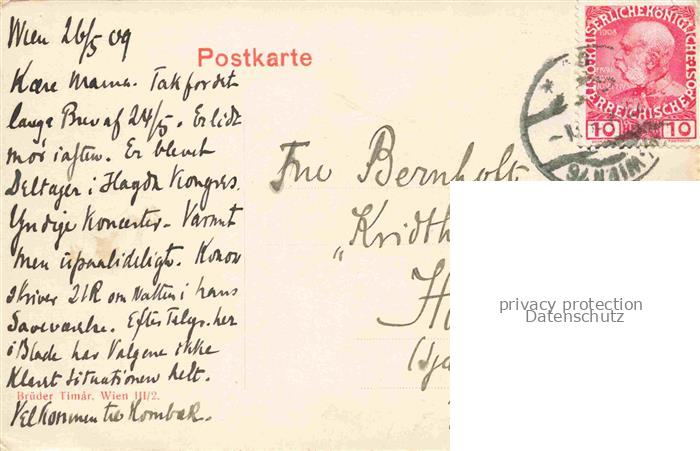 Wien 26/5 09
Postkarte
Kære Mama. Tak for det
lange Brev af 24/5. Er lidt
mør i aften. Er blevet
Deltager i Haydn Kongres.
Yndige Koncerter. Varmt
men upaalideligt. Konow
skriver om Natten i hans
Soveværelse. Efter Telegr. her
i Blade har Valgene ikke
klaret Situationen helt.
Velkommen til Hornbæk.
Brüder Timár, Wien III/2.
Fru Bernholt
"Kridth
H
(Sjæ
1908
10 10
WIEN
privacy protection
Datenschutz